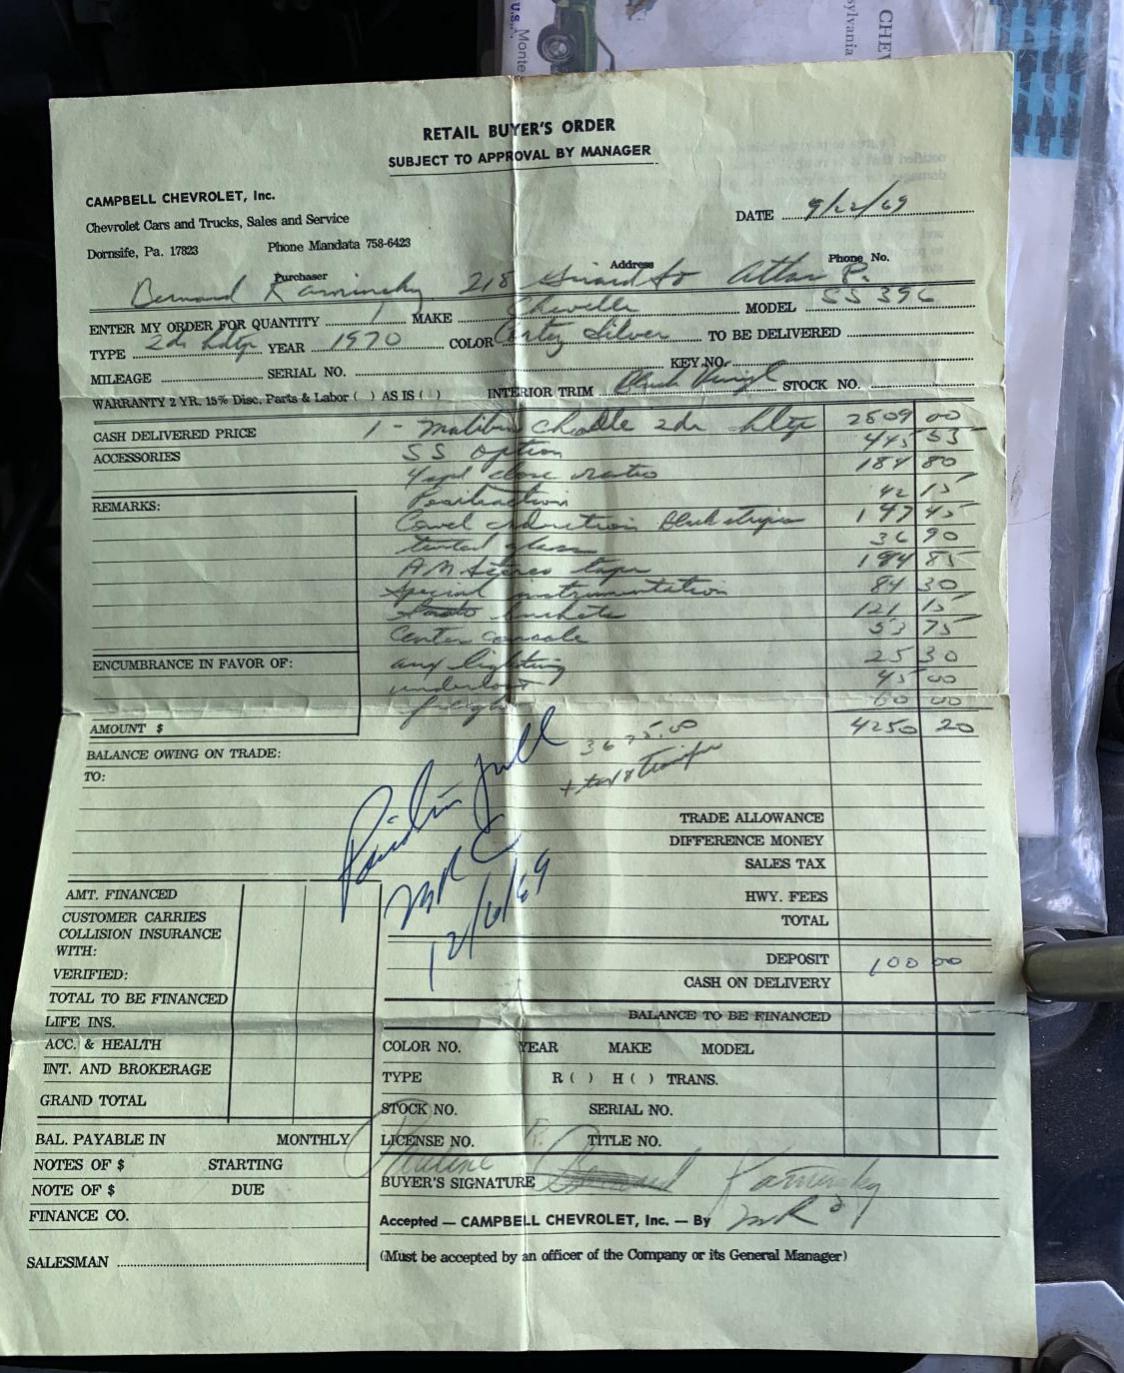 U.S.
Monte
CHEV
sylvania
RETAIL BUYER'S ORDER
SUBJECT TO APPROVAL BY MANAGER
CAMPBELL CHEVROLET, Inc.
Chevrolet Cars and Trucks, Sales and Service
DATE 9/22/69
Dornsife, Pa. 17823 Phone Mandata 758-6423
Purchaser Address Phone No.
Bernard Kaminsky 218 Girard St Atlas P.
ENTER MY ORDER FOR QUANTITY 1 MAKE Chevelle MODEL SS 396
TYPE 2dr hdtp YEAR 1970 COLOR Cortez Silver TO BE DELIVERED
MILEAGE SERIAL NO. KEY NO.
WARRANTY 2 YR. 15% Disc. Parts & Labor ( ) AS IS ( ) INTERIOR TRIM Black Vinyl STOCK NO.
CASH DELIVERED PRICE 1 - Malibu Chevelle 2dr hdtp 2809 00
ACCESSORIES SS option 445 55
4spd close ratio 184 80
REMARKS: Positraction 42 15
Cowel induction Black stripes 147 45
tinted glass 36 90
AM Stereo tape 194 85
Special instrumentation 84 30
buckets 121 15
Center console 53 75
ENCUMBRANCE IN FAVOR OF: aux lighting 25 30
undercoat 45 00
freight 60 00
AMOUNT $ 4250 20
BALANCE OWING ON TRADE: 3675.00
TO: + tax & Transfer
Paid in full
MRC
12/6/69
TRADE ALLOWANCE
DIFFERENCE MONEY
SALES TAX
HWY. FEES
TOTAL
DEPOSIT 100 00
CASH ON DELIVERY
BALANCE TO BE FINANCED
AMT. FINANCED
CUSTOMER CARRIES
COLLISION INSURANCE
WITH:
VERIFIED:
TOTAL TO BE FINANCED
LIFE INS.
ACC. & HEALTH
INT. AND BROKERAGE
GRAND TOTAL
BAL. PAYABLE IN MONTHLY
NOTES OF $ STARTING
NOTE OF $ DUE
FINANCE CO.
SALESMAN
COLOR NO. YEAR MAKE MODEL
TYPE R ( ) H ( ) TRANS.
STOCK NO. SERIAL NO.
LICENSE NO. TITLE NO.
Pauline R.
BUYER'S SIGNATURE Bernard Kaminsky
Accepted — CAMPBELL CHEVROLET, Inc. — By MR
(Must be accepted by an officer of the Company or its General Manager)